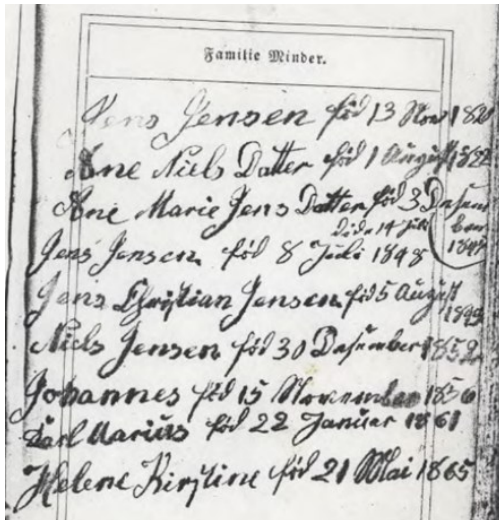 Familie Minder.
Jens Jensen föd 13 Nov 1820
Ane Niels Datter föd 1 August 1822
Ane Marie Jens Datter föd 3 Desem
ber
1845
Jens Jensen föd 8 Juli 1848
döde 14 Juli
Jens Christian Jensen föd 5 August
1849
Niels Jensen föd 30 Desember 1852
Johannes föd 15 November 1856
Karl Marius föd 22 Januar 1861
Helene Kirstine föd 21 Mai 1865